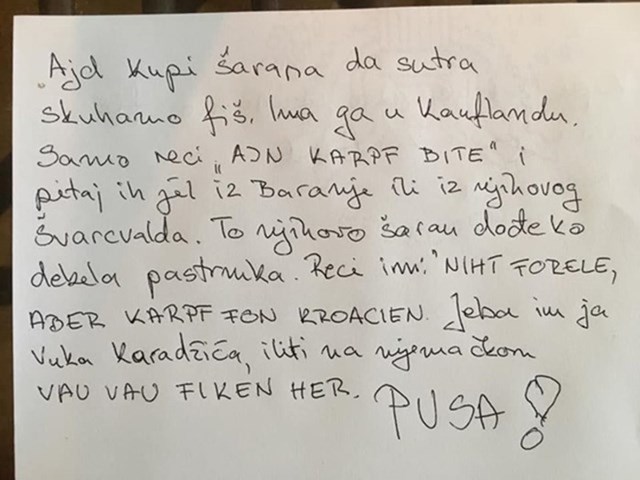 Ajd kupi šarana da sutra
skuhamo fiš. Ima ga u Kauflandu.
Samo reci „AJN KARPF BITE" i
pitaj ih jel iz Baranje ili iz njihovog
Švarcvalda. To njihovo šaran dođe ko
debela pastrmka. Reci im: "NIHT FORELE,
ABER KARPF FON KROACIEN. Jeba im ja
Vuka Karadžića, iliti na njemačkom
VAU VAU FIKEN HER. PUSA!